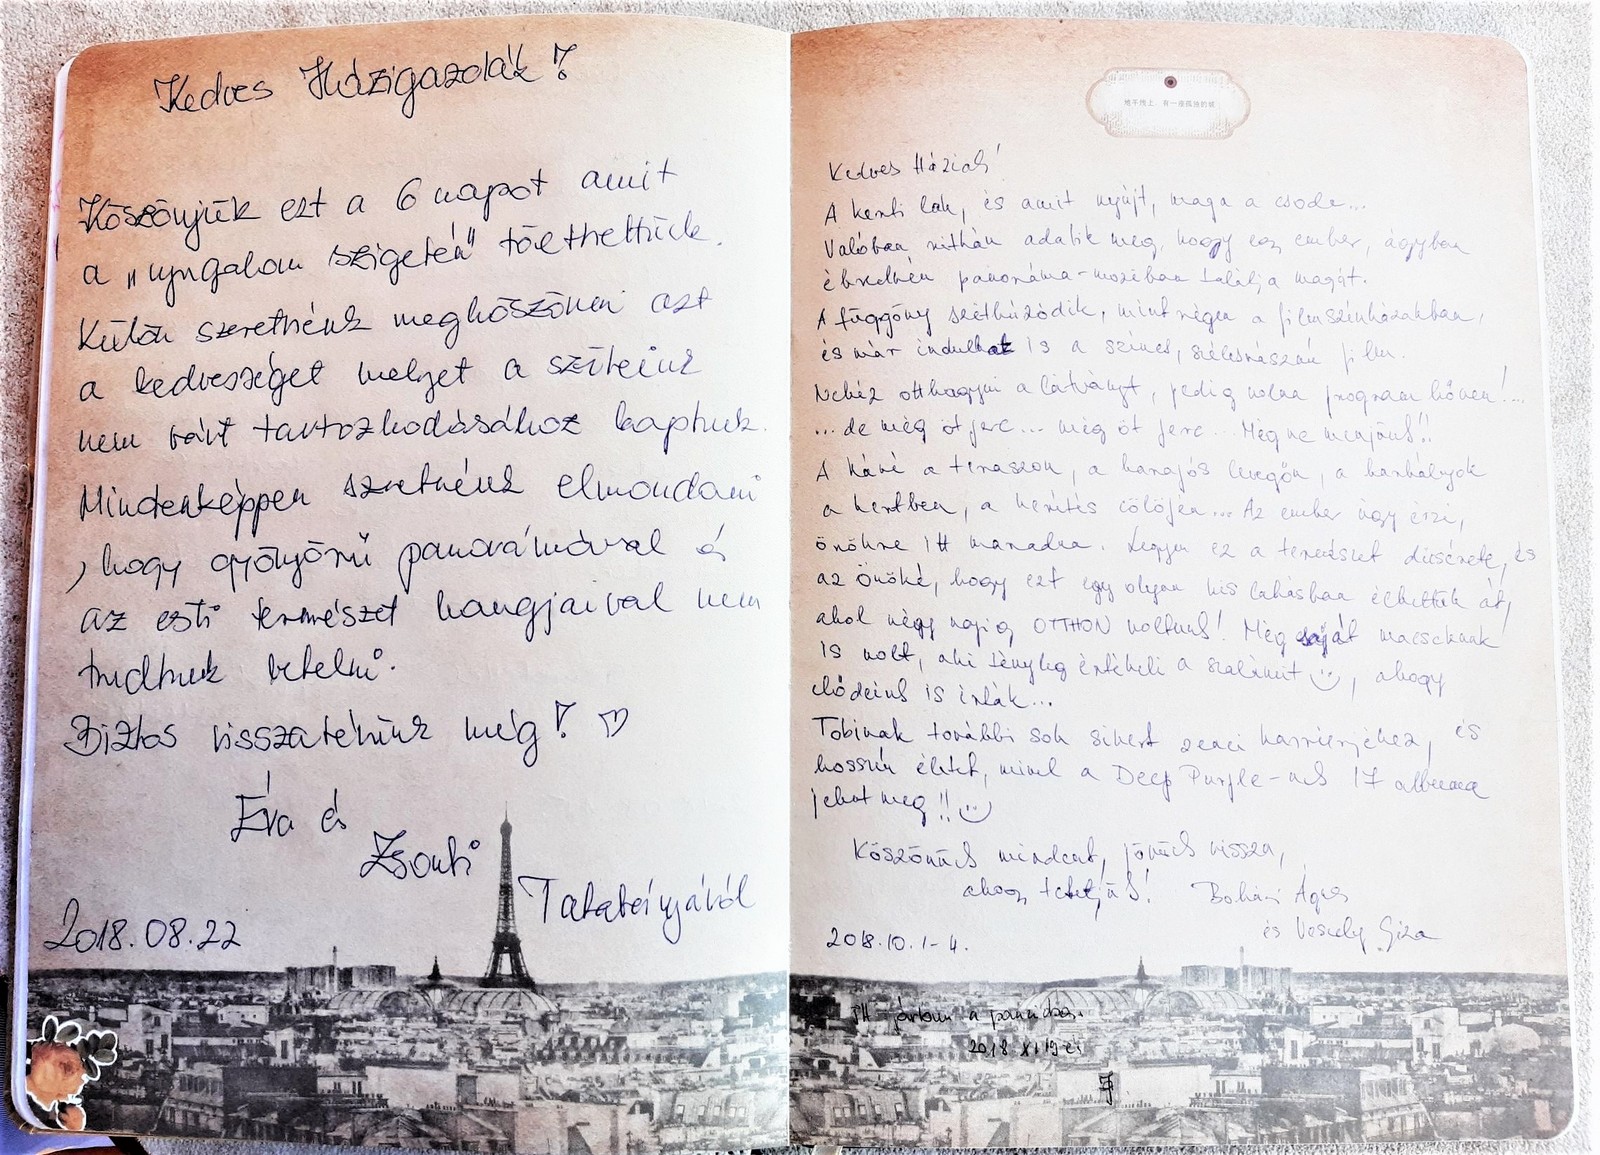 Kedves Házigazdák!
Köszönjük ezt a 6 napot amit
a "nyugalom szigetén" tölthettünk.
Külön szeretnénk megköszönni azt
a kedvességet melyet a szüleink
nem várt tartozkodásához kaptunk.
Mindenképpen szeretnénk elmondani
, hogy gyönyörű panorámával és
az esti természet hangjaival nem
tudtunk betelni.
Biztos visszatérünk még! ♡
Éva és
Zsolti
Tatabányáról
2018.08.22
地平线上, 有一座孤独的城
Kedves Háziak!
A kerti lak, és amit nyújt, maga a csoda...
Valóban ritkán adatik meg, hogy egy ember, ágyban
ébredvén panoráma-moziban találja magát.
A függöny széthúzódik, mint régen a filmszínházakban,
és már indulhat is a színes, szélesvásznú film.
Nehéz otthagyni a látványt, pedig volna program bőven!...
... de még öt perc... még öt perc... Még ne menjünk!!
A kávé a teraszon, a harapós levegőn, a harkályok
a kertben, a kerítés cölöpén... Az ember úgy érzi,
örökre itt maradna. Legyen ez a természet dícsérete, és
az Önöké, hogy ezt egy olyan kis lakásban élhettük át,
ahol négy napig OTTHON voltunk! Még saját macskánk
is volt, aki tényleg értékeli a szalámit :), ahogy
elődeink is írták...
Tobinak további sok sikert zenei karrierjéhez, és
hosszú életet, mivel a Deep Purple-nek 17 albuma
jelent meg!! :)
Köszönünk mindent, jövünk vissza,
ahogy tehetjük! Ágnes
és Vesely Géza
2018.10.1-4.
Itt jártam a
2018 XI 19-én